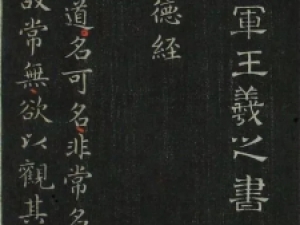 軍王羲之書
德經
道名可名非常名
故常無欲以觀其